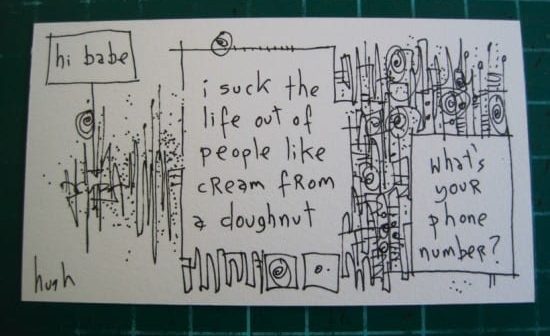 hi babe
i suck the
life out of
people like
cream from
a doughnut
what's
your
phone
number?
hugh